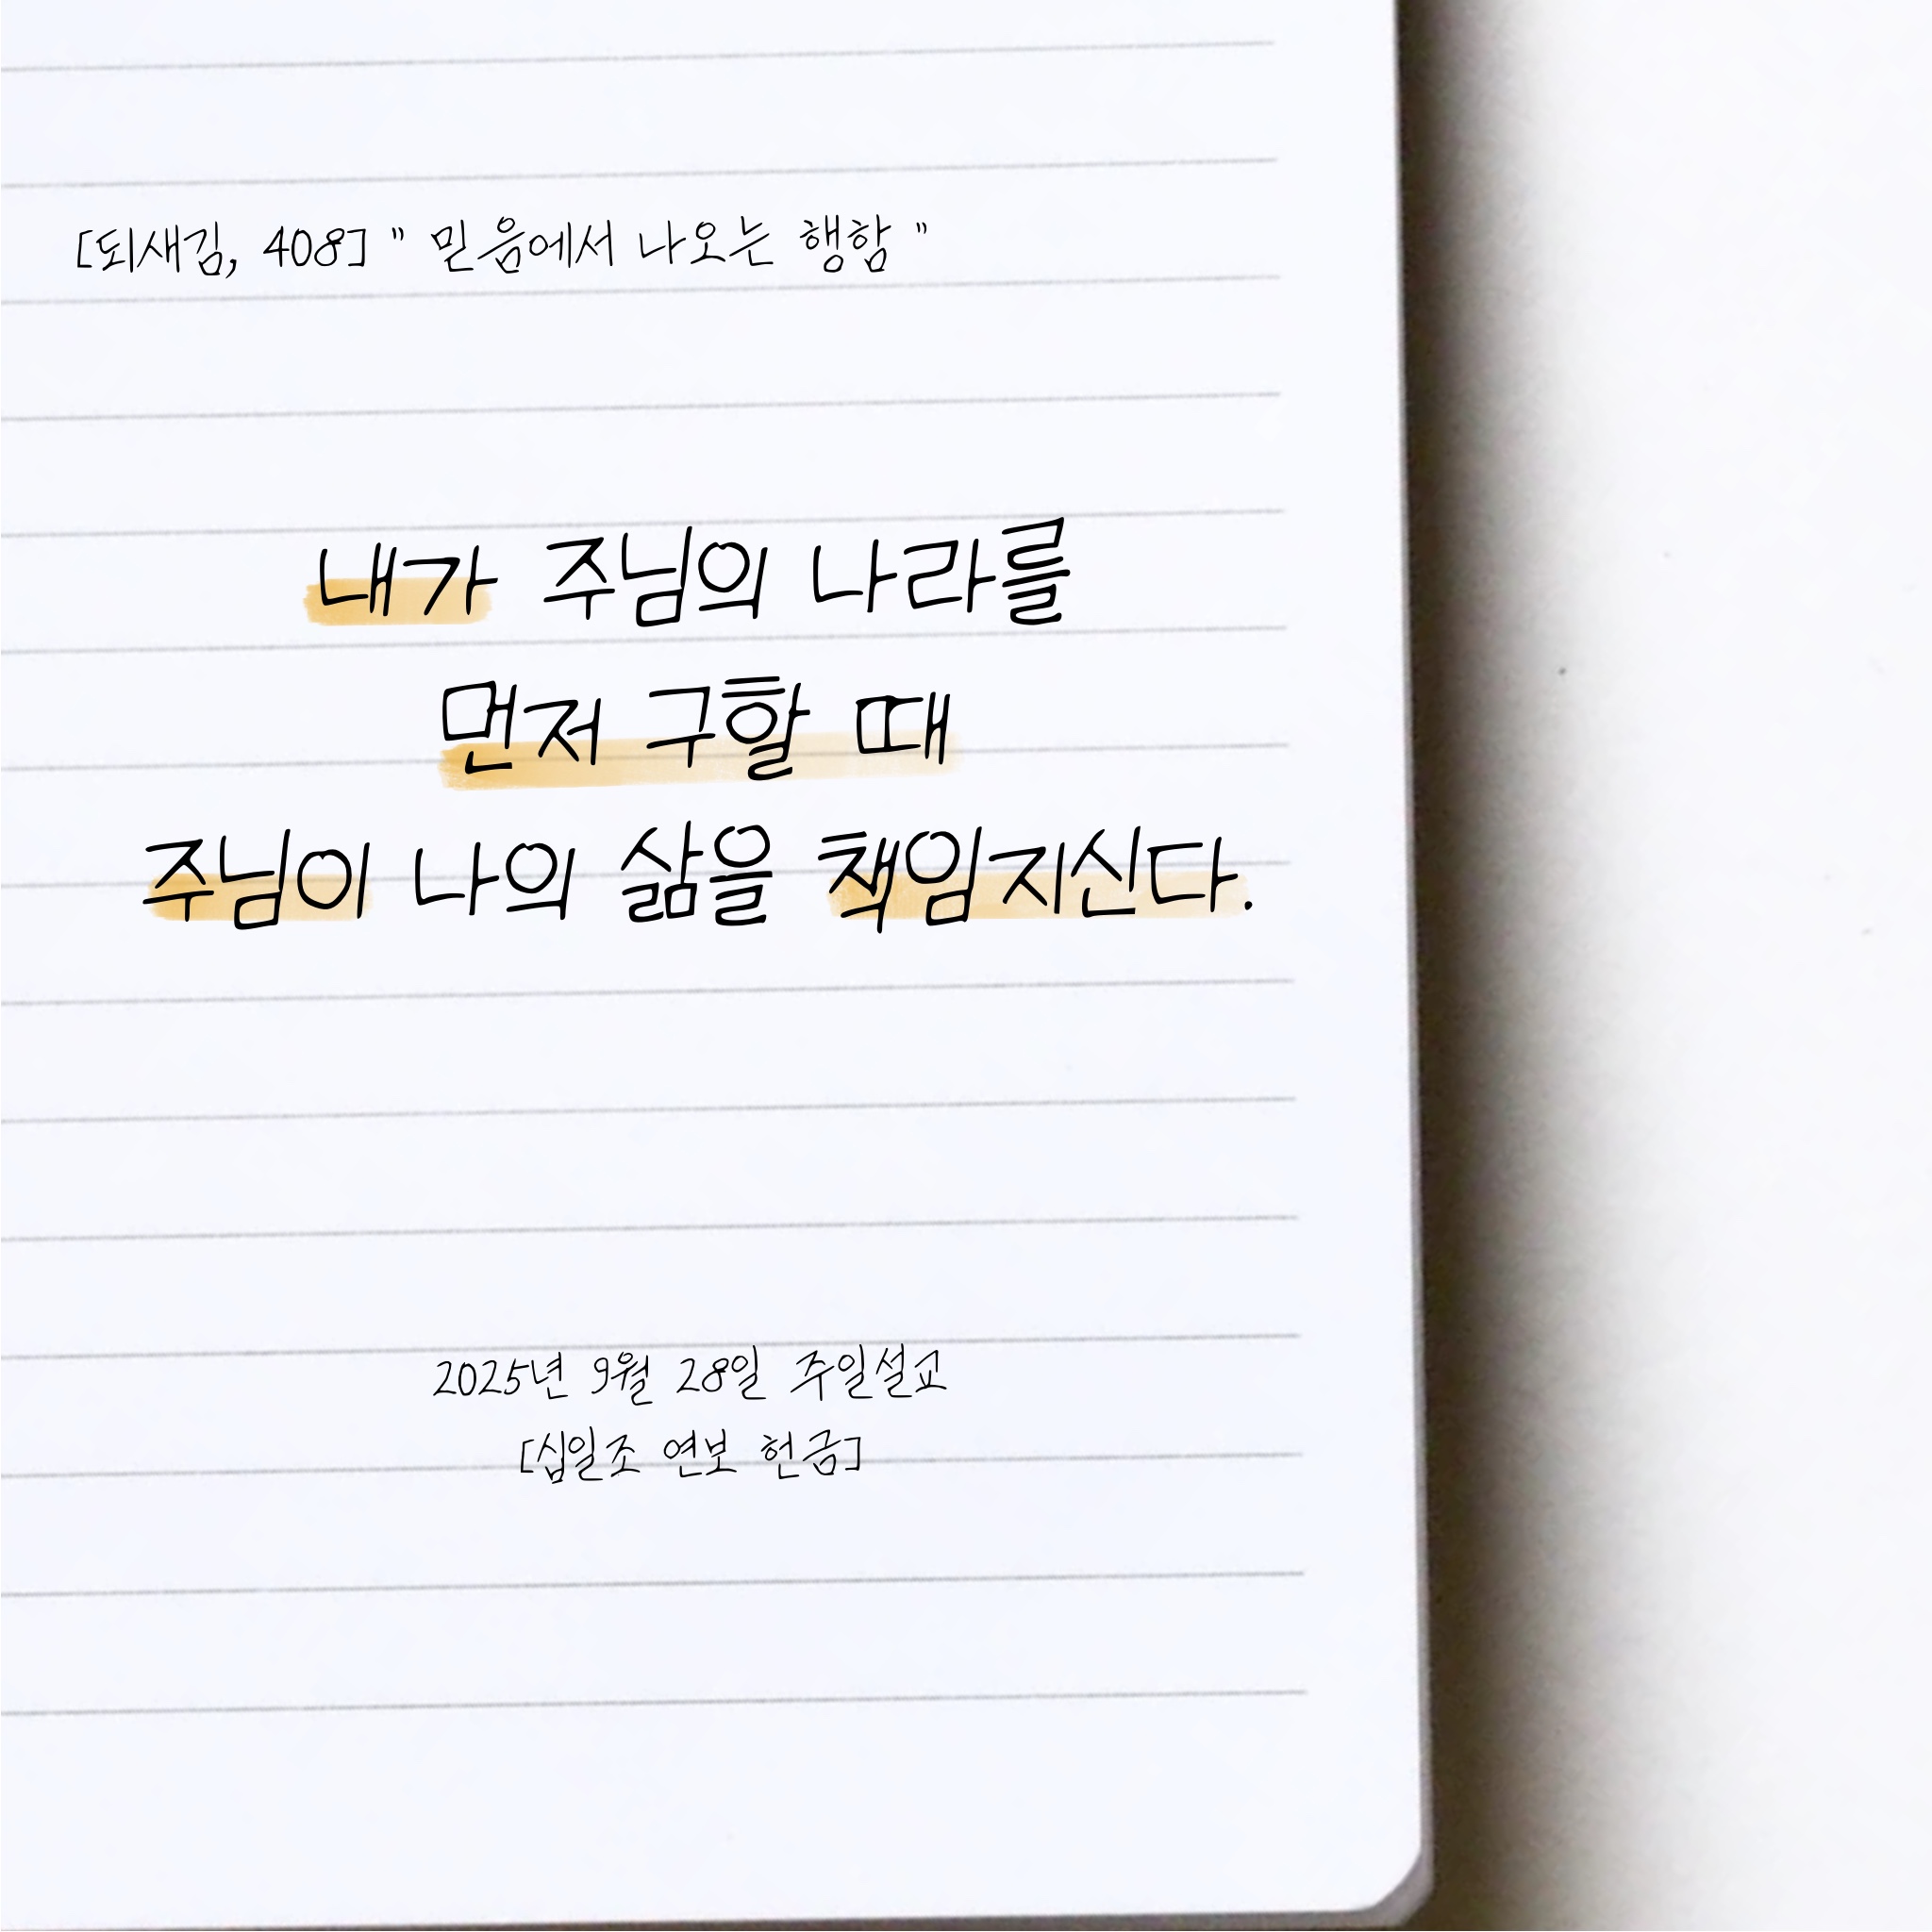 [되새김, 408] " 믿음에서 나오는 행함 "
내가 주님의 나라를
먼저 구할 때
주님이 나의 삶을 책임지신다.
2025년 9월 28일 주일설교
[십일조 연보 헌금]